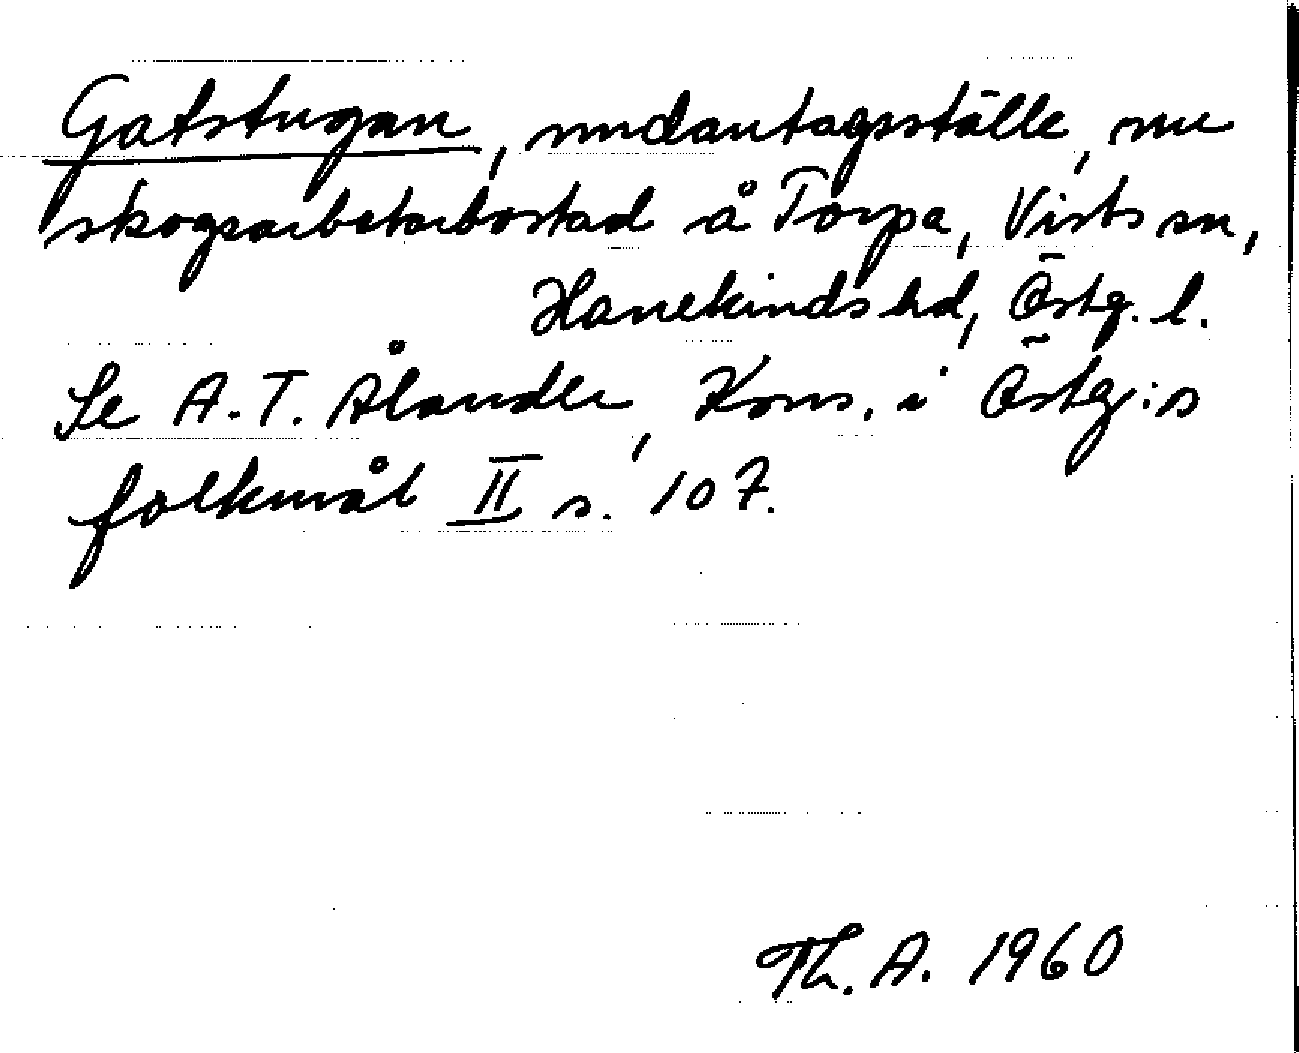 Gatstugan, undantagsställe, nu
skogsarbetarbostad å Torpa, Vists sn,
Hanekinds hd, Östg. l.
Se A.T. Ålander, Kons. i Östg:s
folkmål II s. 107.
Th. A. 1960